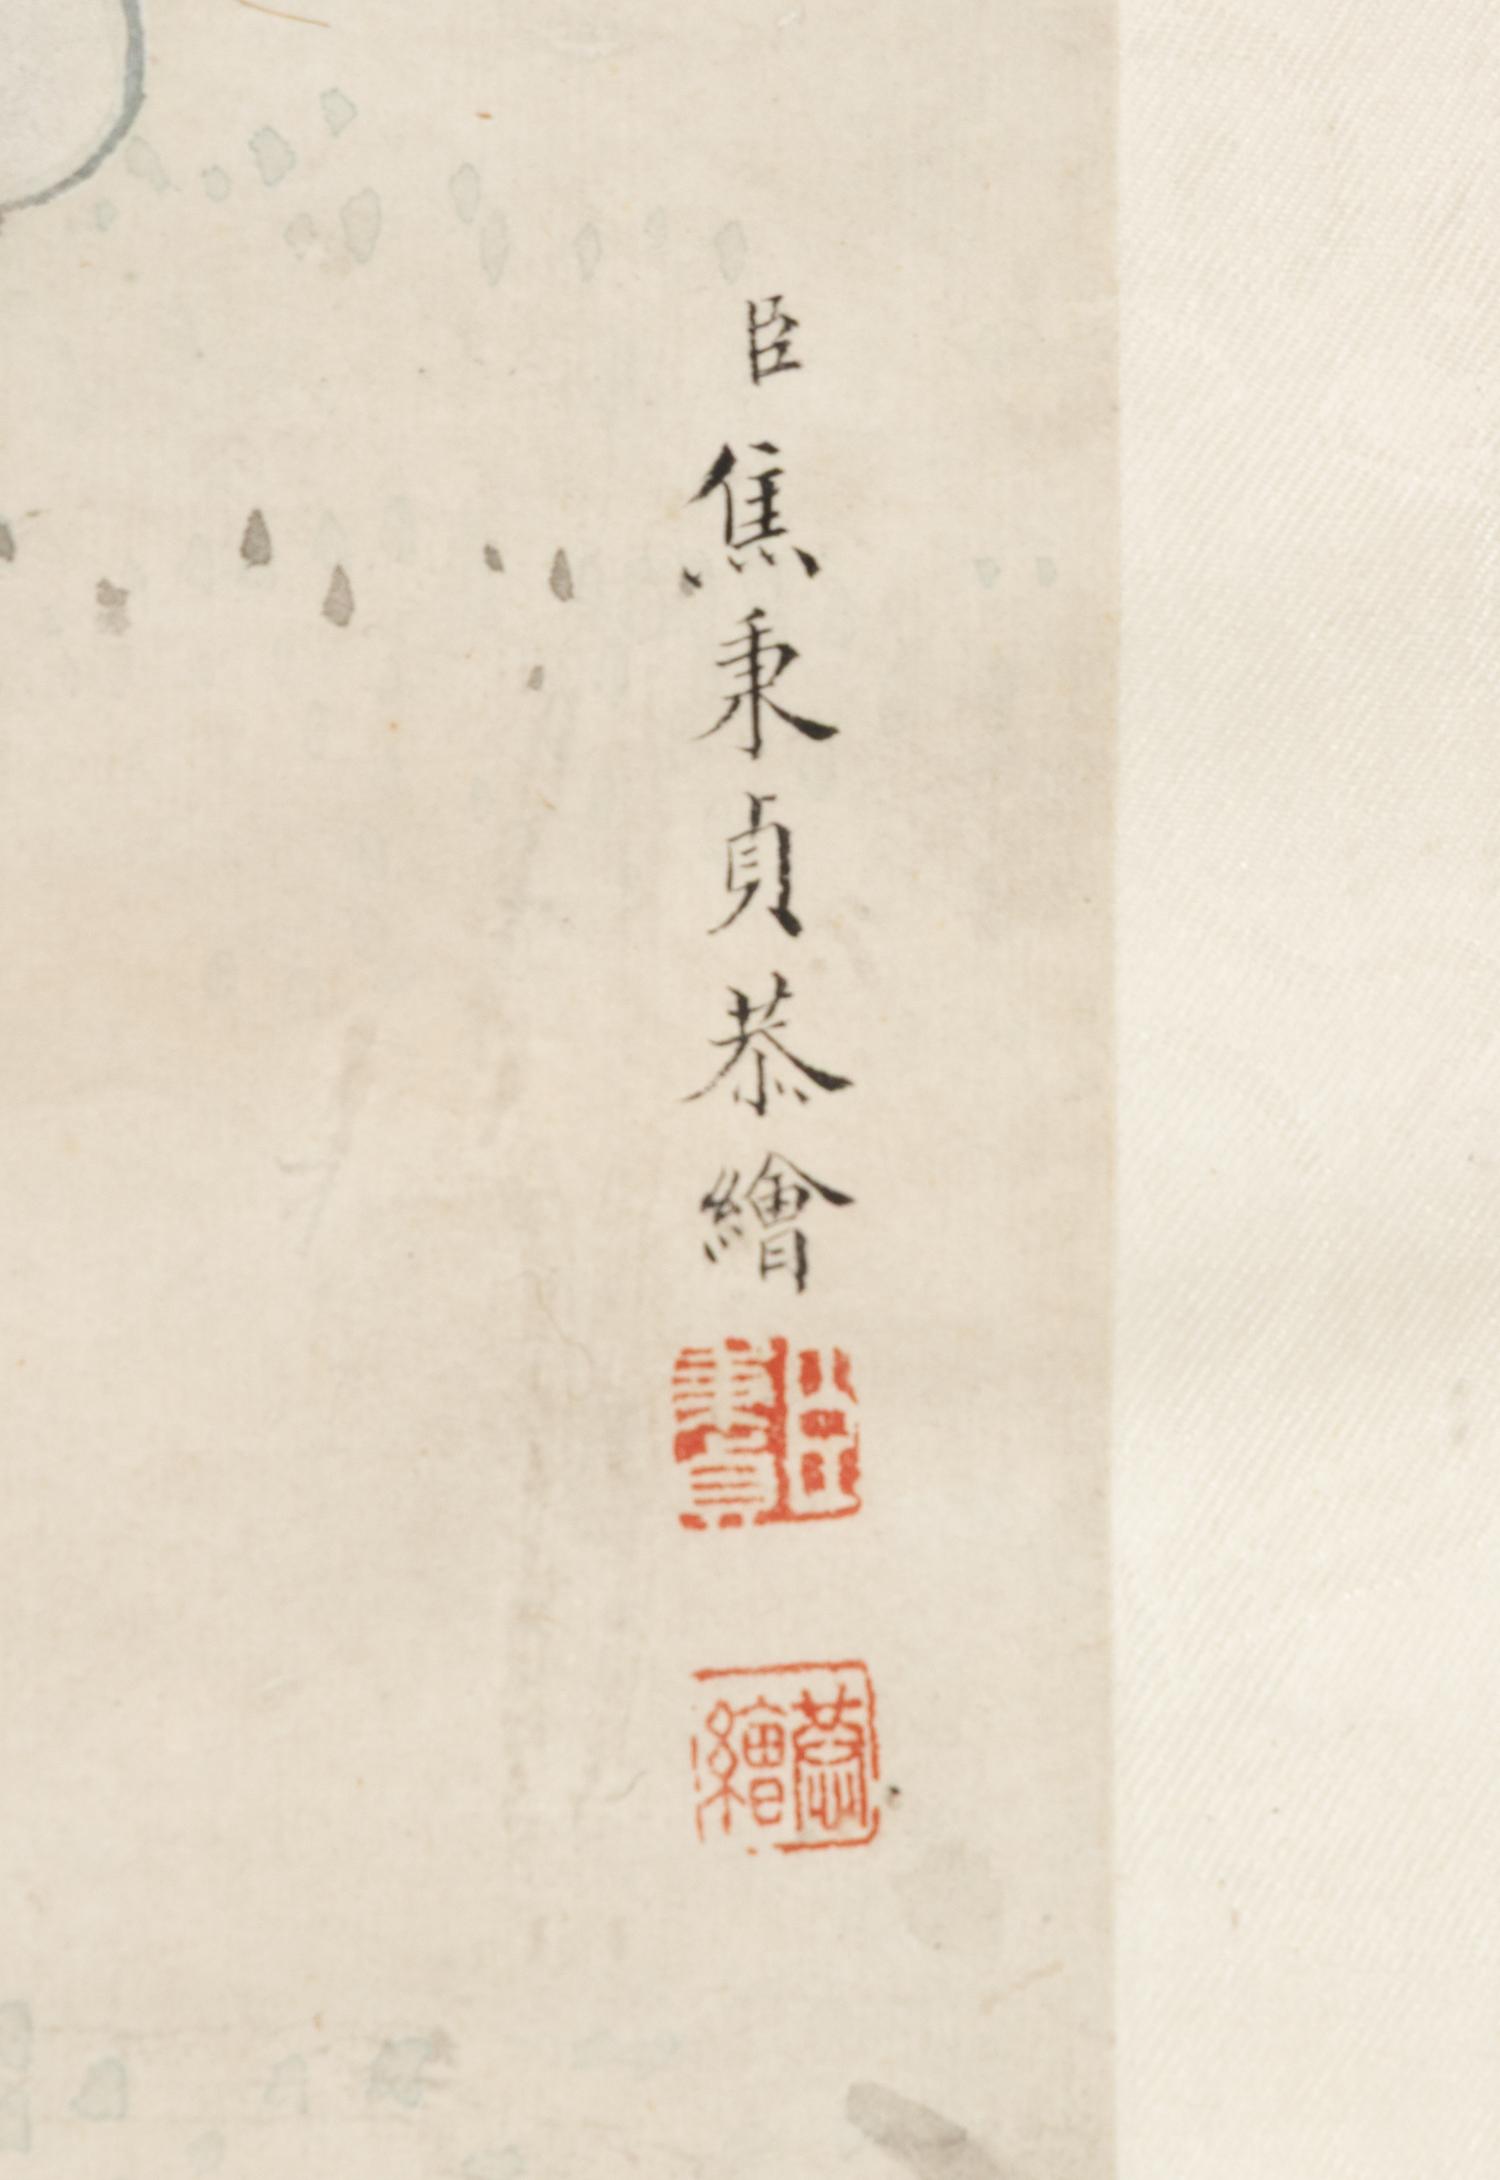 臣焦秉貞恭繪
秉貞
恭繪